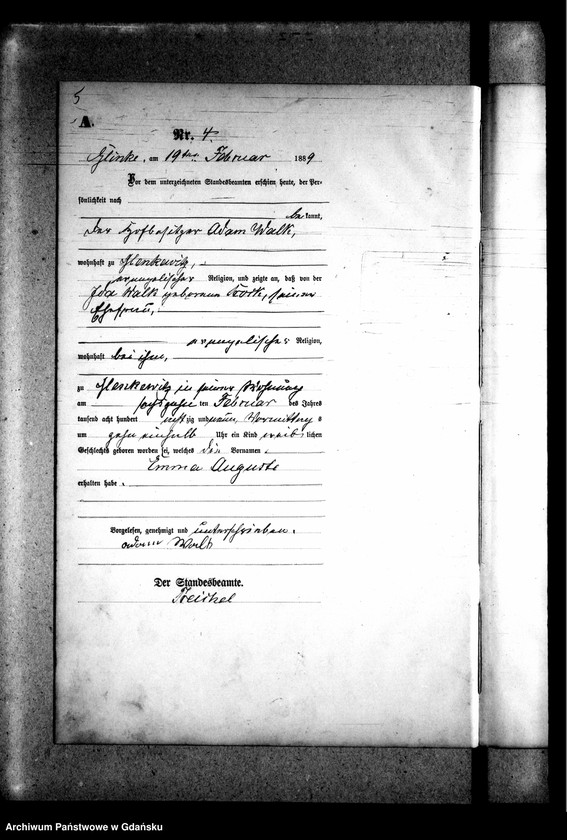 5
A.
Nr. 4
Glinke, am 19ten Februar 1889
Vor dem unterzeichneten Standesbeamten erschien heute, der Per-
sönlichkeit nach
bekannt,
der Hofbesitzer Adam Walk,
wohnhaft zu
evangelischer Religion, und zeigte an, daß von der
Ida Walk geborenen seiner
Ehefrau,
evangelischer Religion,
wohnhaft bei ihm,
zu in seiner Wohnung
am ten Februar des Jahres
tausend acht hundert achtzig und neun, Vormittags
um zehn einhalb Uhr ein Kind weiblichen
Geschlechts geboren worden sei, welches die Vornamen
Emma Auguste
erhalten habe.
Vorgelesen, genehmigt und unterschrieben.
Adam Walk
Der Standesbeamte.
Archiwum Państwowe w Gdańsku